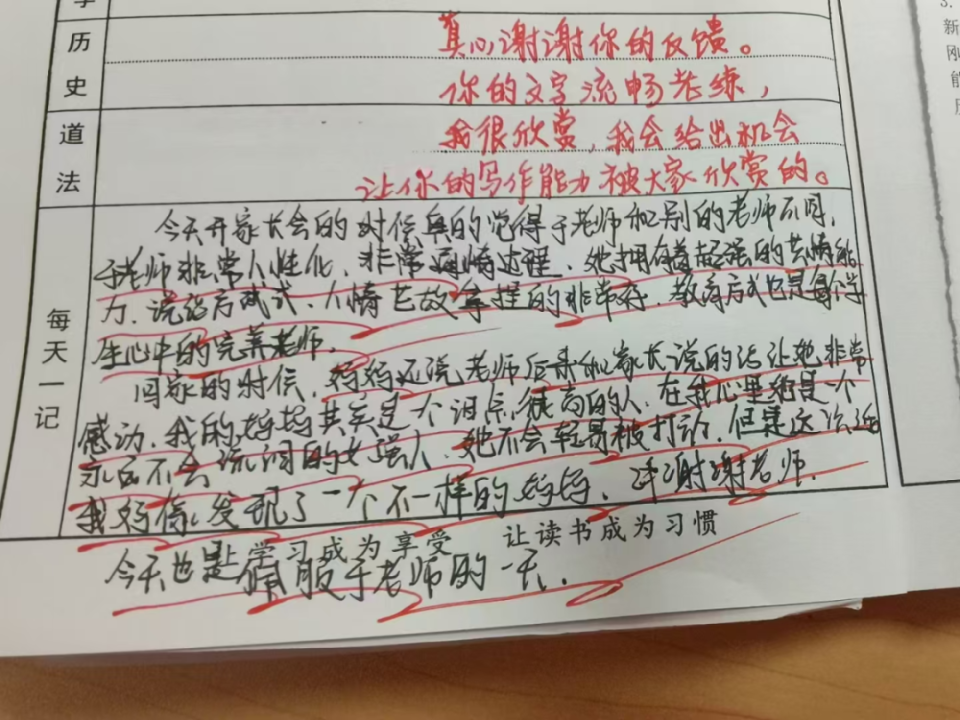 学
历
史
道
法
真心谢谢你的反馈。
你的文字流畅老练，
我很欣赏，我会给出机会
让你的写作能力被大家欣赏的。
每天一记
今天开家长会的时候真的觉得于老师和别的老师不同，
于老师非常人性化、非常通情达理、她拥有着超强的共情能
力、说话方式、人情世故拿捏的非常好、教育方式也是每个学
生心中的完美老师。
回家的时候，妈妈还说老师后来和家长说的话让她非常
感动、我的妈妈其实是一个泪点很高的人、在我心里她是一个
永远不会流泪的女强人、她不会轻易被打动、但是这次
我发现了一个不一样的妈妈、谢谢老师.
让学习成为享受 让读书成为习惯
今天也是佩服于老师的一天.
3.
新
刚
能